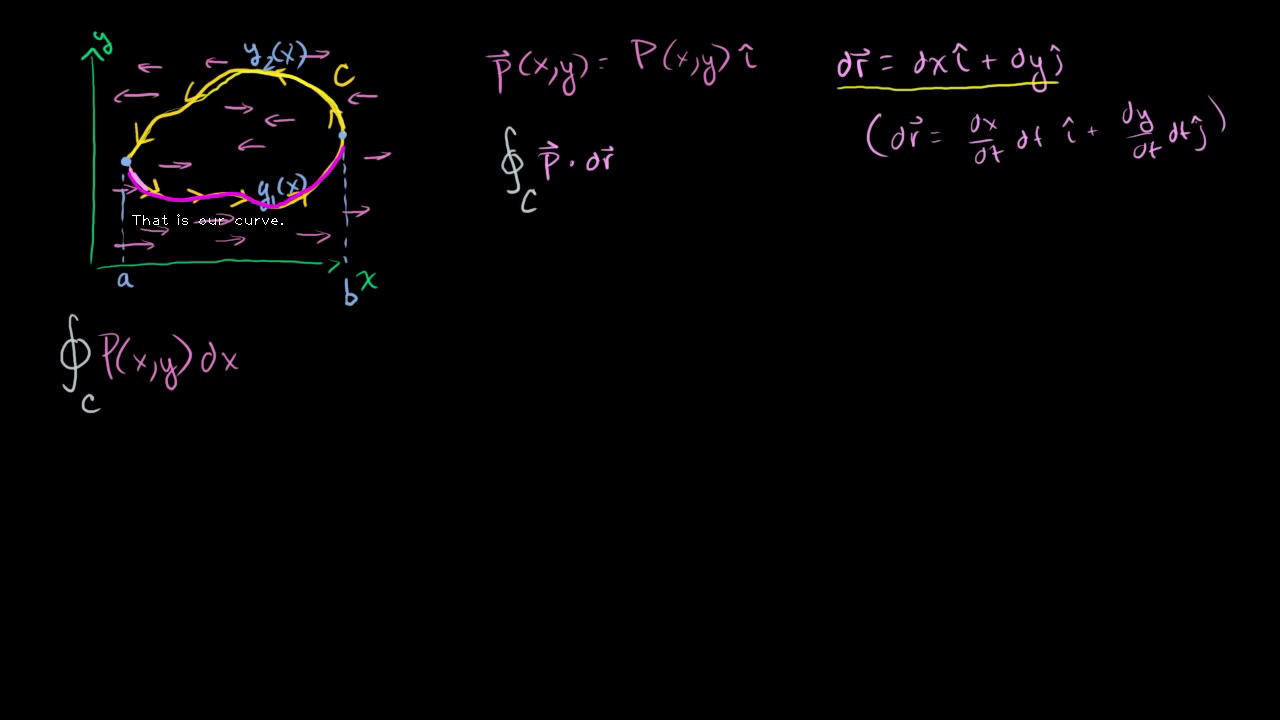 y
y₂(x)
C
y₁(x)
That is our curve.
a
b
x
∮_C P(x,y) dx
P⃗(x,y) = P(x,y) î
∮_C P⃗ · dr⃗
dr⃗ = dx î + dy ĵ
(dr⃗ = dx/dt dt î + dy/dt dt ĵ)